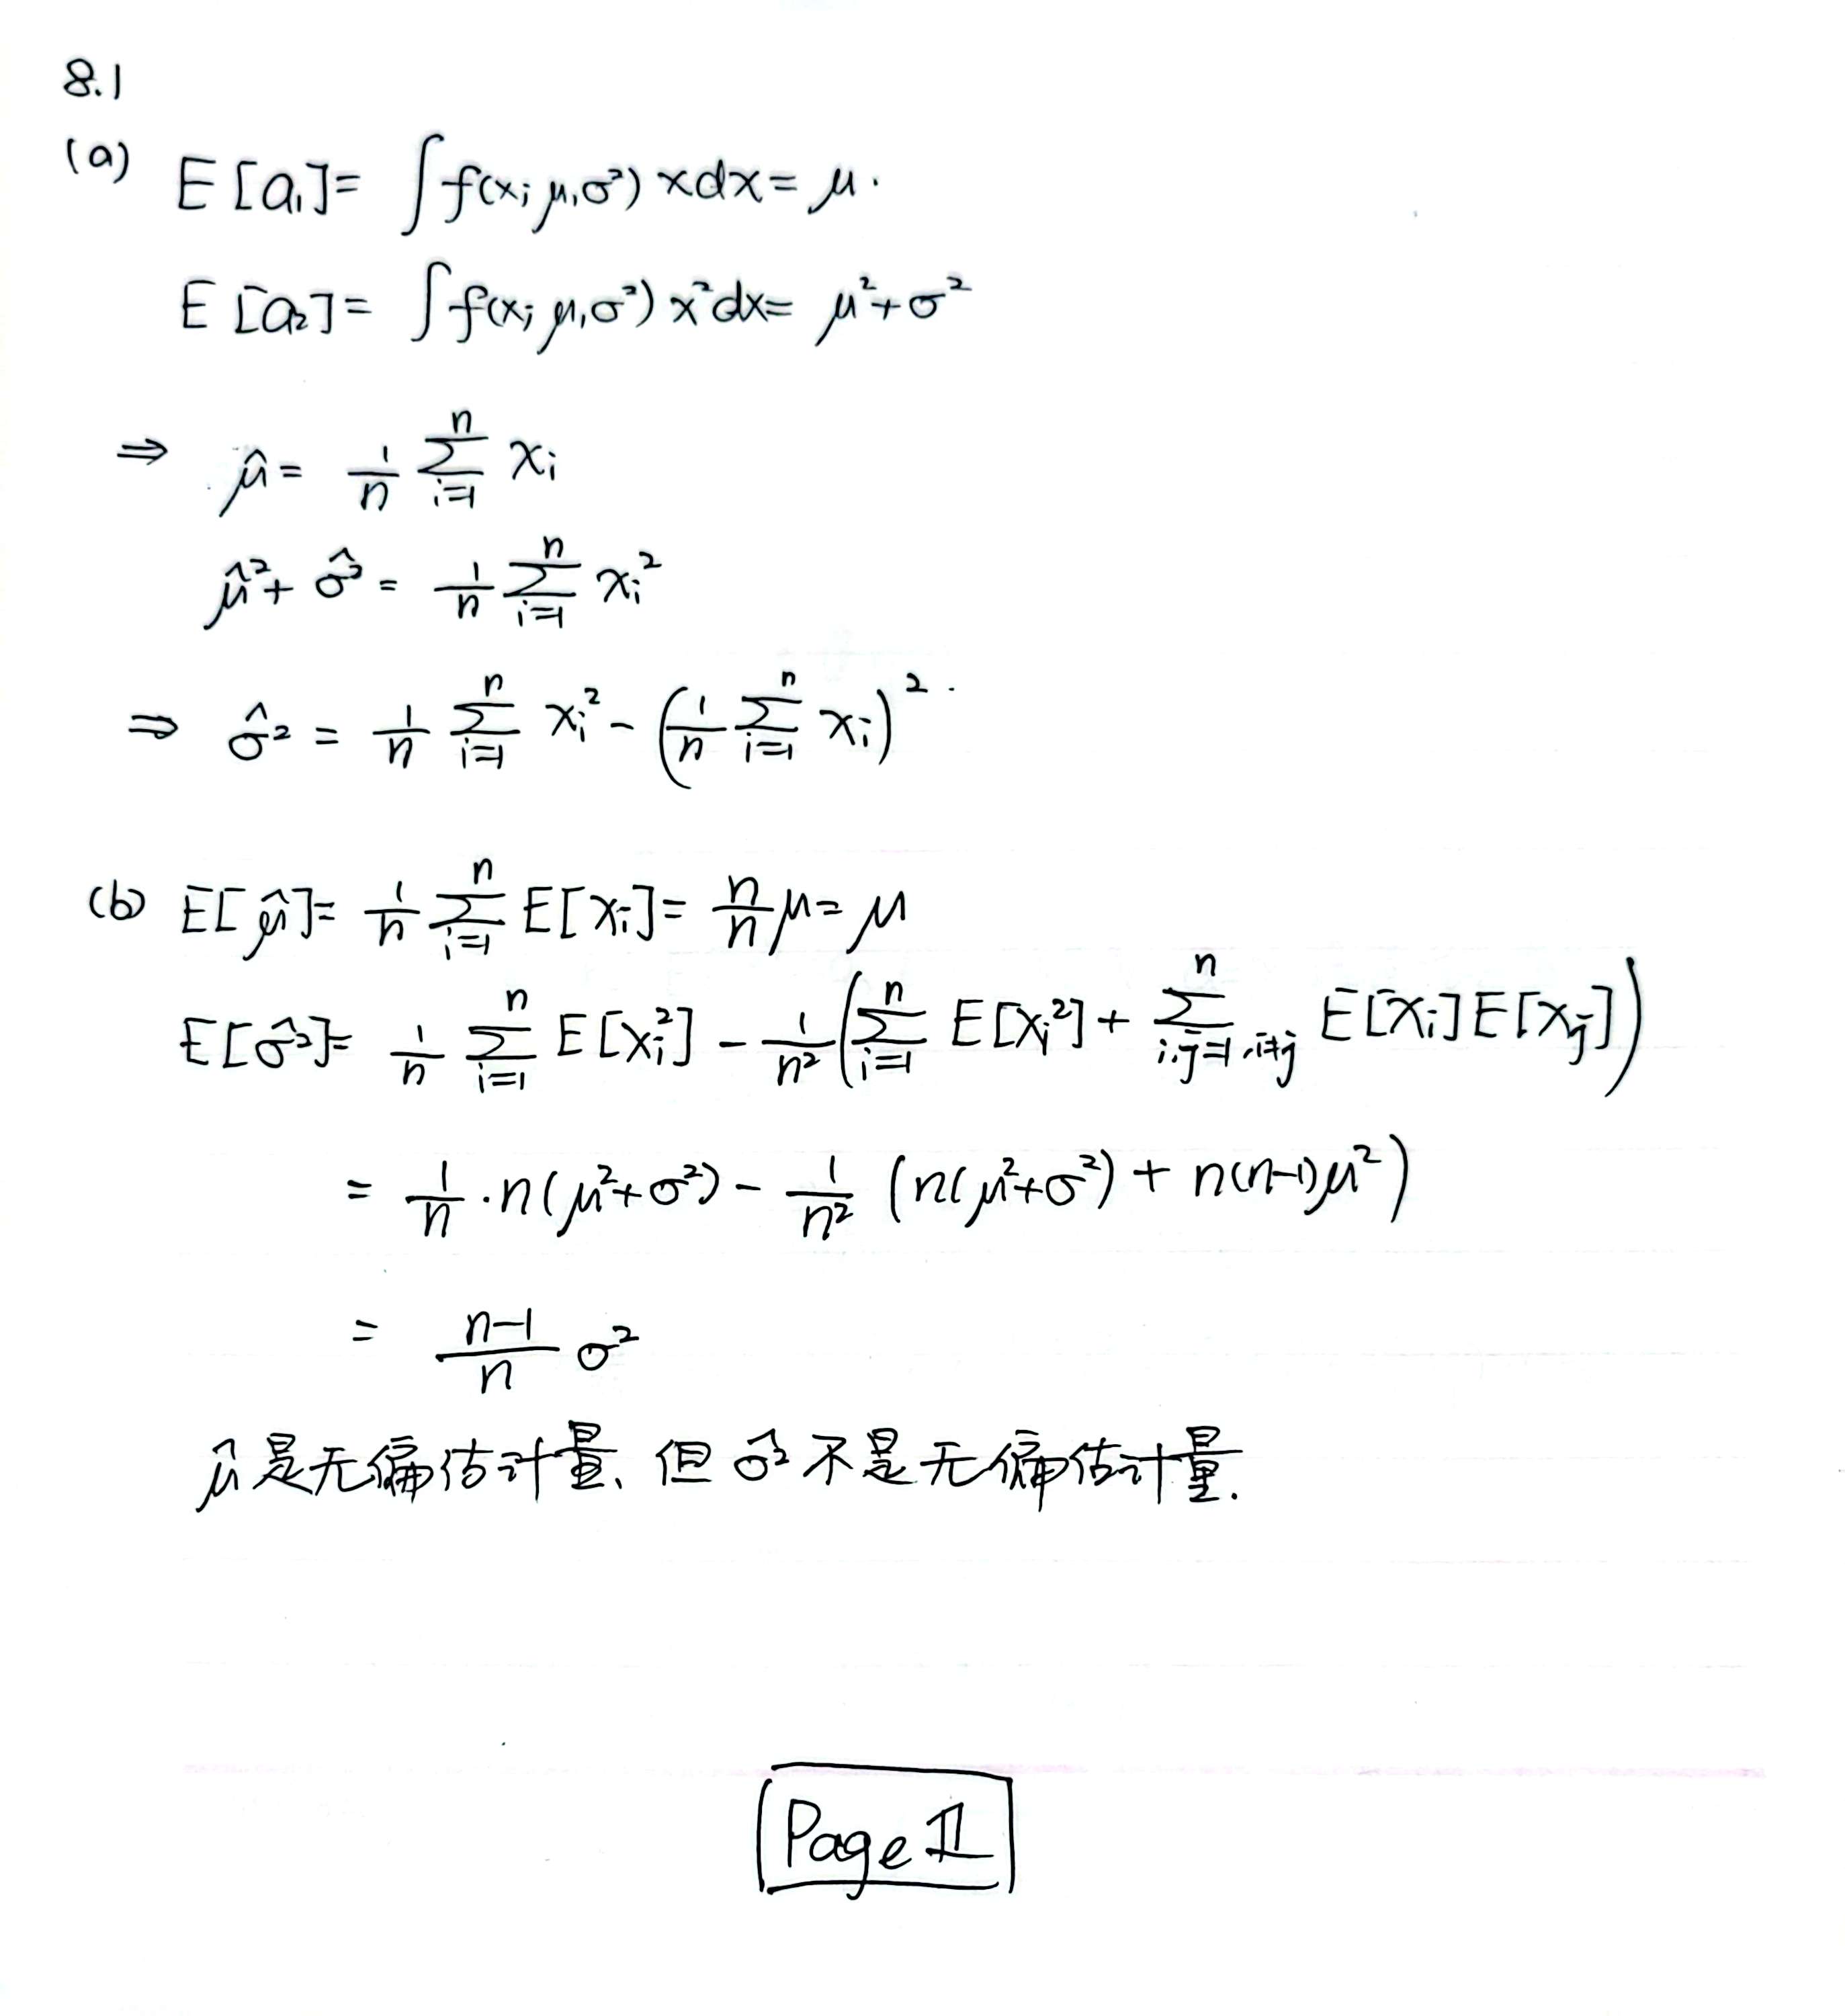 8.1
(a) E[a₁] = ∫ f(x; μ, σ²) x dx = μ.
E[a₂] = ∫ f(x; μ, σ²) x² dx = μ² + σ²
⇒ μ̂ = 1/n ∑_{i=1}^{n} xᵢ
μ̂² + σ̂² = 1/n ∑_{i=1}^{n} xᵢ²
⇒ σ̂² = 1/n ∑_{i=1}^{n} xᵢ² − (1/n ∑_{i=1}^{n} xᵢ)².
(b) E[μ̂] = 1/n ∑_{i=1}^{n} E[xᵢ] = n/n μ = μ
E[σ̂²] = 1/n ∑_{i=1}^{n} E[xᵢ²] − 1/n² (∑_{i=1}^{n} E[xᵢ²] + ∑_{i,j=1,i≠j}^{n} E[xᵢ]E[xⱼ])
= 1/n · n(μ² + σ²) − 1/n² (n(μ² + σ²) + n(n−1)μ²)
= (n−1)/n σ²
μ̂是无偏估计量、但σ̂²不是无偏估计量.
Page 1